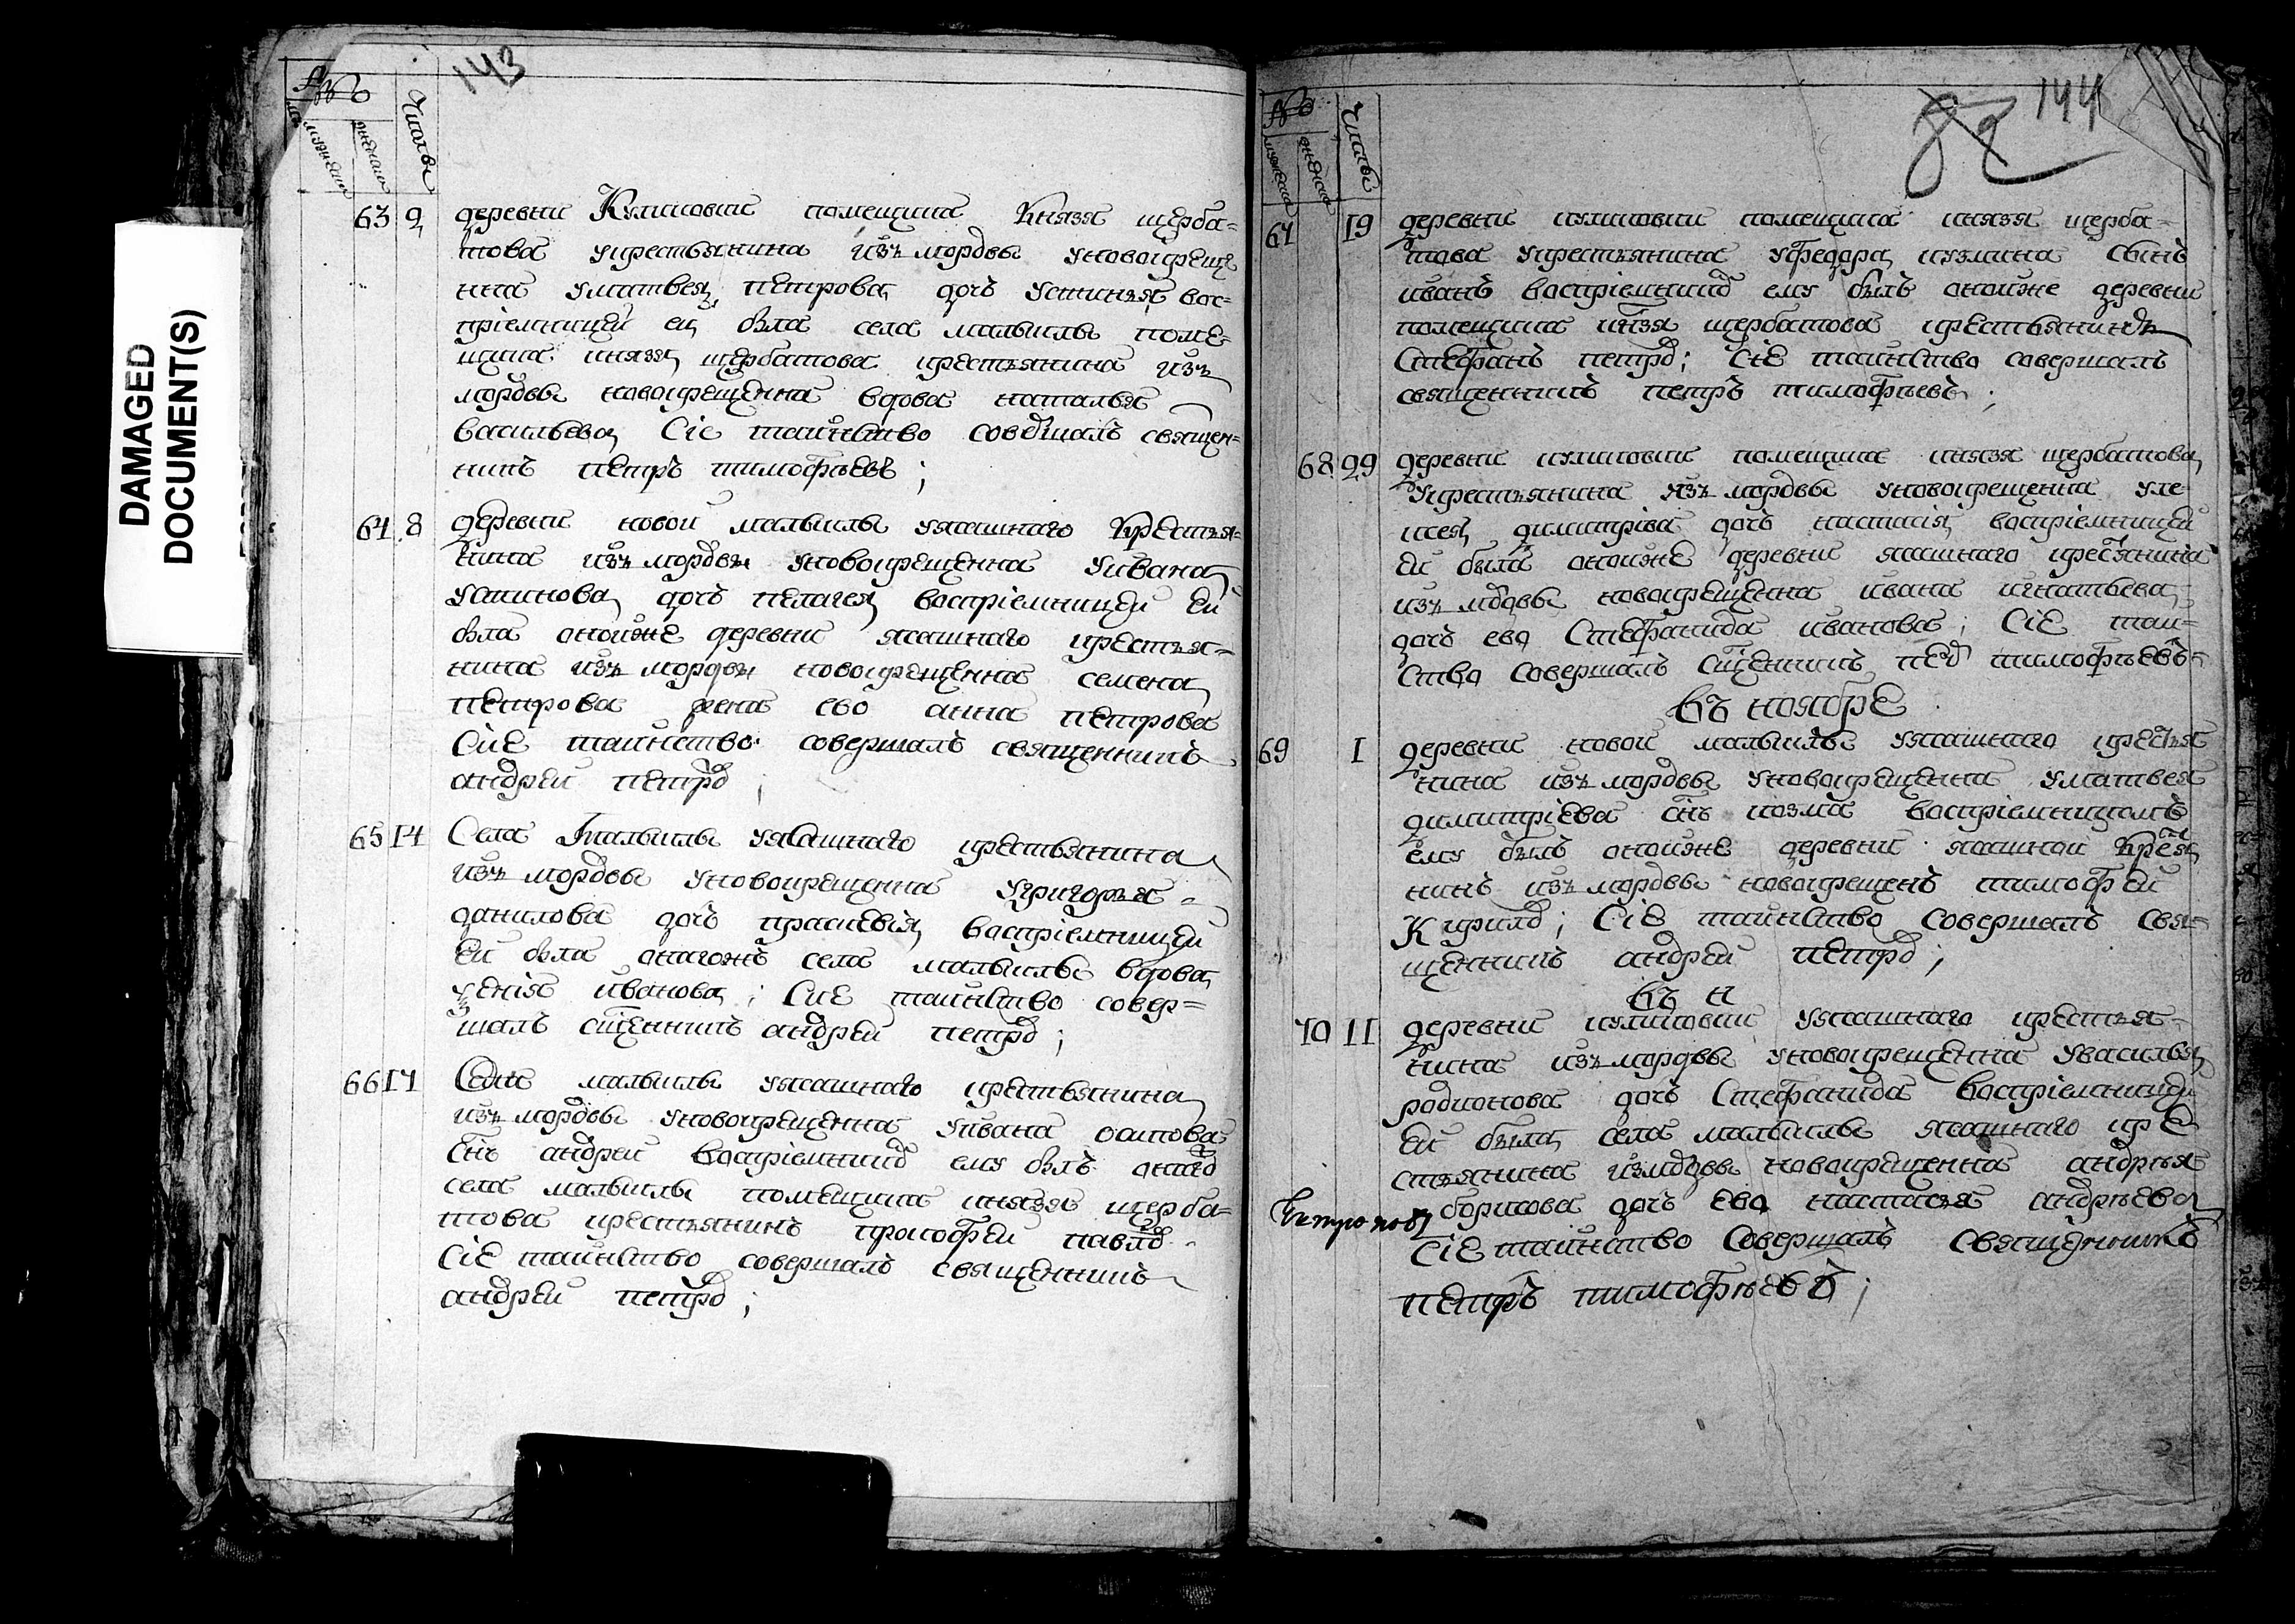 143
№
мужеска
женска
Числы
63 2 деревни Куликовки помещика Князя щерба=
това укрестьянина изъ мордвы уновокреще
нна уматвея петрова дочь устинья вос=
приемницей ей была села малыклы поме=
щика князя щербатова крестьянина изъ
мордвы новокрещенна вдова наталья
васильева Сие таинство совершалъ священ=
никъ петръ тимофѣевъ ;
64 8 деревни новой малыклы уясашнаго Крестья=
нина изъ мордвы уновокрещенна уивана
устинова дочь пелагея восприемницей ей
была оной же деревни ясашнаго крестья=
нина изъ мордвы новокрещенна семена
петрова жена ево анна петрова
Сие таинство совершалъ священникъ
андреи петровъ ;
65 14 Села малыклы уясашнаго крестьянина
изъ мордвы уновокрещенна угригорья
данилова дочь праскевия восприемницей
ей была онагожъ села малыклы вдова
ксения иванова ; Сие таинство совер=
шалъ сщенникъ андреи петровъ ;
66 17 Села малыклы уясашнаго крестьянина
изъ мордвы уновокрещенна уивана осипова
снъ андреи восприемникомъ ему былъ онагожъ
села малыклы помещика князя щерба=
това крестьянинъ прокофеи павловъ
Сие таинство совершалъ священникъ
андреи петровъ ;
82 144
№
мужеска
женска
Числы
67 19 деревни куликовки помещика князя щерба=
това укрестьянина уфедора кузмина сынъ
иванъ восприемникомъ ему былъ оной же деревни
помещика кнзя щербатова крестьянинъ
Стефанъ петровъ ; Сие таинство совершалъ
священникъ петръ тимофѣевъ ;
68 29 деревни куликовки помещика князя щербатова
укрестьянина изъ мордвы уновокрещенна уле
ксея димитріва дочь настасія восприемницей
ей была оной же деревни ясашнаго крестьянина
изъ мордвы новокрещенна ивана игнатьева
дочь ево Стефанида иванова ; Сие таин=
ство совершалъ сщенникъ петръ тимофѣевъ
въ ноябре
69 1 деревни новой малыклы уясашнаго крестья
нина изъ мордвы уновокрещенна уматвея
димитріева снъ козма восприемникомъ
ему былъ оной же деревни ясашной Крестья
нинъ изъ мордвы новокрещенъ тимофеи
Кирилов ; Сие таинство совершалъ свя=
щенникъ андреи петровъ ;
въ н
70 11 деревни куликовки уясашнаго крестья=
нина изъ мордвы уновокрещенна увасилья
родионова дочь Стефанида восприемницей
ей была села малыклы ясашнаго кре
стьянина изъ мордвы новокрещенна андрѣя
борисова дочь ево настасья андрѣева
Сие таинство Совершалъ Священникъ
петръ тимофѣевъ ;
DAMAGED
DOCUMENT(S)